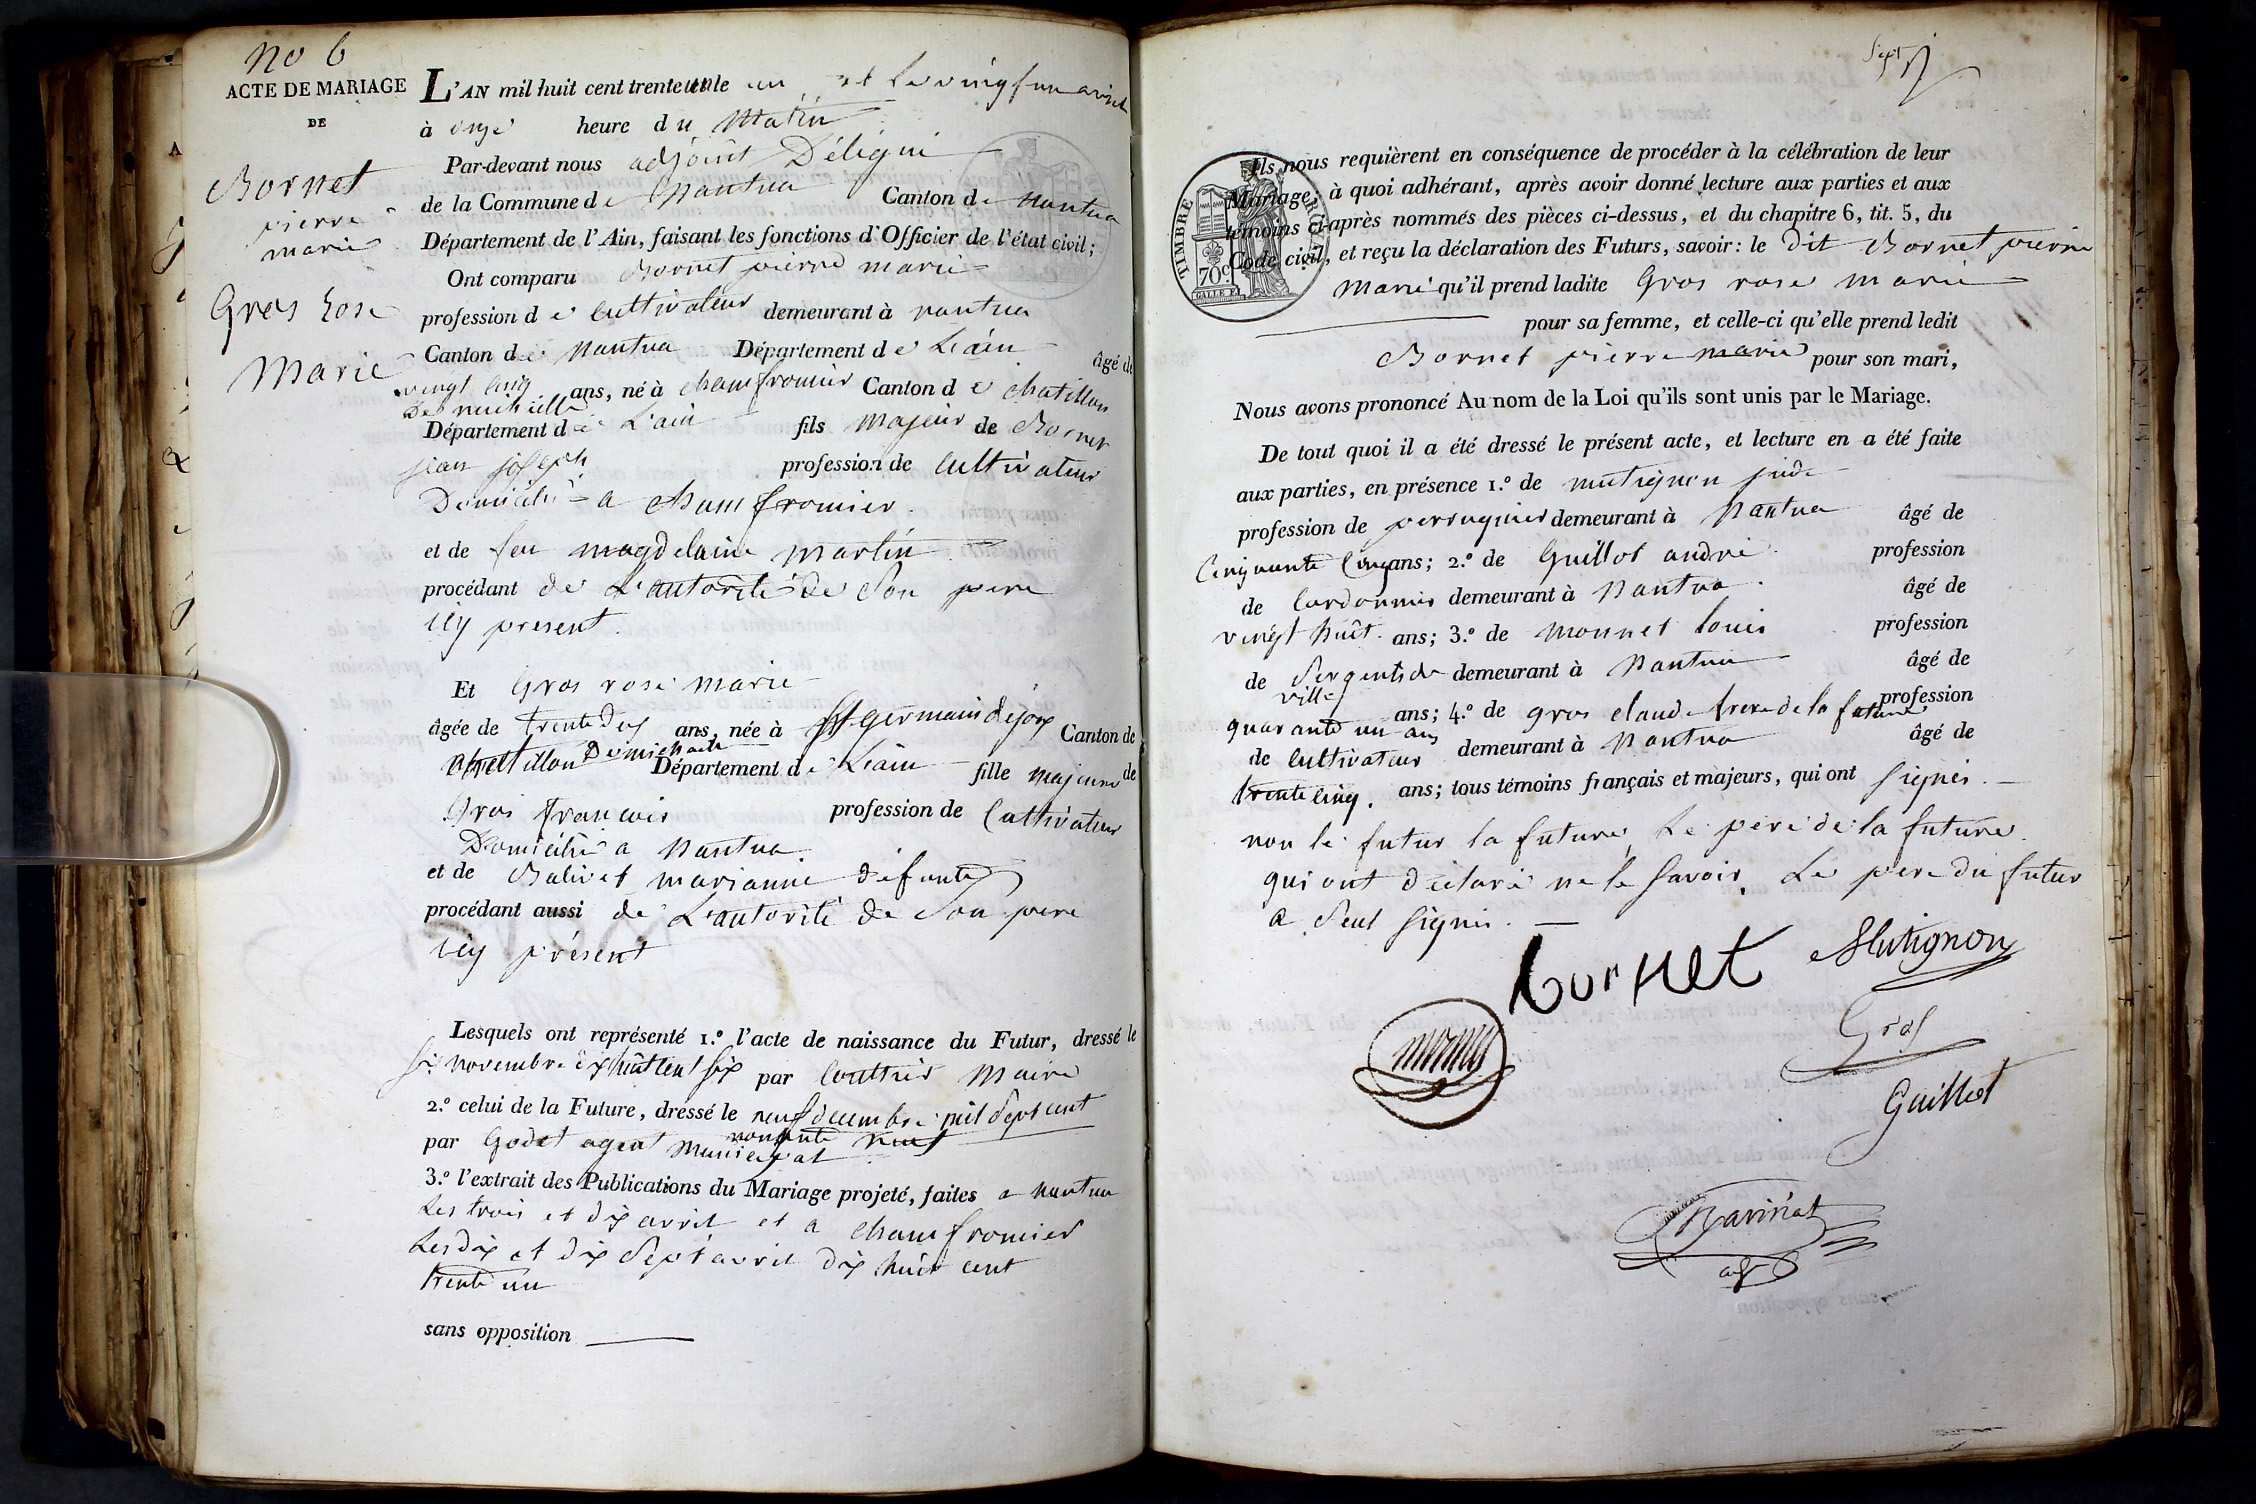 no 6
ACTE DE MARIAGE
DE
Bornet
pierre
marie
Gros Rose
Marie
L'AN mil huit cent trente un le un et le vingt un avril
à onze heure du Matin
Par-devant nous adjoint Délégué
de la Commune de Nantua Canton de Nantua
Département de l'Ain, faisant les fonctions d'Officier de l'état civil;
Ont comparu Bornet pierre marie
profession de Cultivateur demeurant à nantua
Canton de Nantua Département de L'ain âgé de
vingt cinq ans, né à chamfromier Canton de chatillon
de michaille
Département de L'ain fils Majeur de Bornet
jean joseph profession de Cultivateur
Domicilié a chamfromier.
et de feu magdelaine martin
procédant de L'autorité de Son pere
icy present.
Et Gros rose Marie
âgée de trente deux ans, née à St germain dejoux Canton de
chattillon de michaille Département de L'ain fille majeure de
Gros françois profession de Cultivateur
Domicilié a Nantua.
et de Balivet marianne défunte
procédant aussi de L'autorité de Son pere
icy présent
Lesquels ont représenté 1.º l'acte de naissance du Futur, dressé le
six novembre dix huit cent six par Coutier Maire
2.º celui de la Future, dressé le neuf decembre mil sept cent
nonante neuf
par Godet agent Municipal
3.º l'extrait des Publications du Mariage projeté, faites a Nantua
Les trois et dix avril et a chamfromier
Les dix et dix Sept avril dix huit cent
trente un
sans opposition
Sept
TIMBRE
70c.
Ils nous requièrent en conséquence de procéder à la célébration de leur
Mariage; à quoi adhérant, après avoir donné lecture aux parties et aux
témoins ci-après nommés des pièces ci-dessus, et du chapitre 6, tit. 5, du
Code civil, et reçu la déclaration des Futurs, savoir: le dit Bornet pierre
Marie qu'il prend ladite Gros rose marie
pour sa femme, et celle-ci qu'elle prend ledit
Bornet pierre marie pour son mari,
Nous avons prononcé Au nom de la Loi qu'ils sont unis par le Mariage.
De tout quoi il a été dressé le présent acte, et lecture en a été faite
aux parties, en présence 1.º de mutignon jude
profession de perruquier demeurant à Nantua âgé de
Cinquante Cinq ans; 2.º de Guillot andré profession
de Cordonnier demeurant à Nantua. âgé de
vingt huit ans; 3.º de Monnet Louis profession
de Sergent de ville demeurant à Nantua âgé de
quarante un ans ans; 4.º de gros claude frere de la future profession
de Cultivateur demeurant à Nantua âgé de
trente cinq. ans; tous témoins français et majeurs, qui ont Signés.
non le futur la future, Le pere de la future
qui ont déclaré ne le Savoir. Le pere du futur
a Seul Signé.
bornet Mutignon
Gros
Guillot